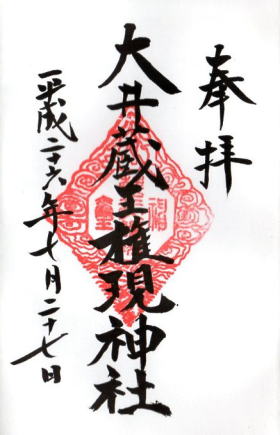 奉拝
大井蔵王権現神社
平成二十六年七月二十七日